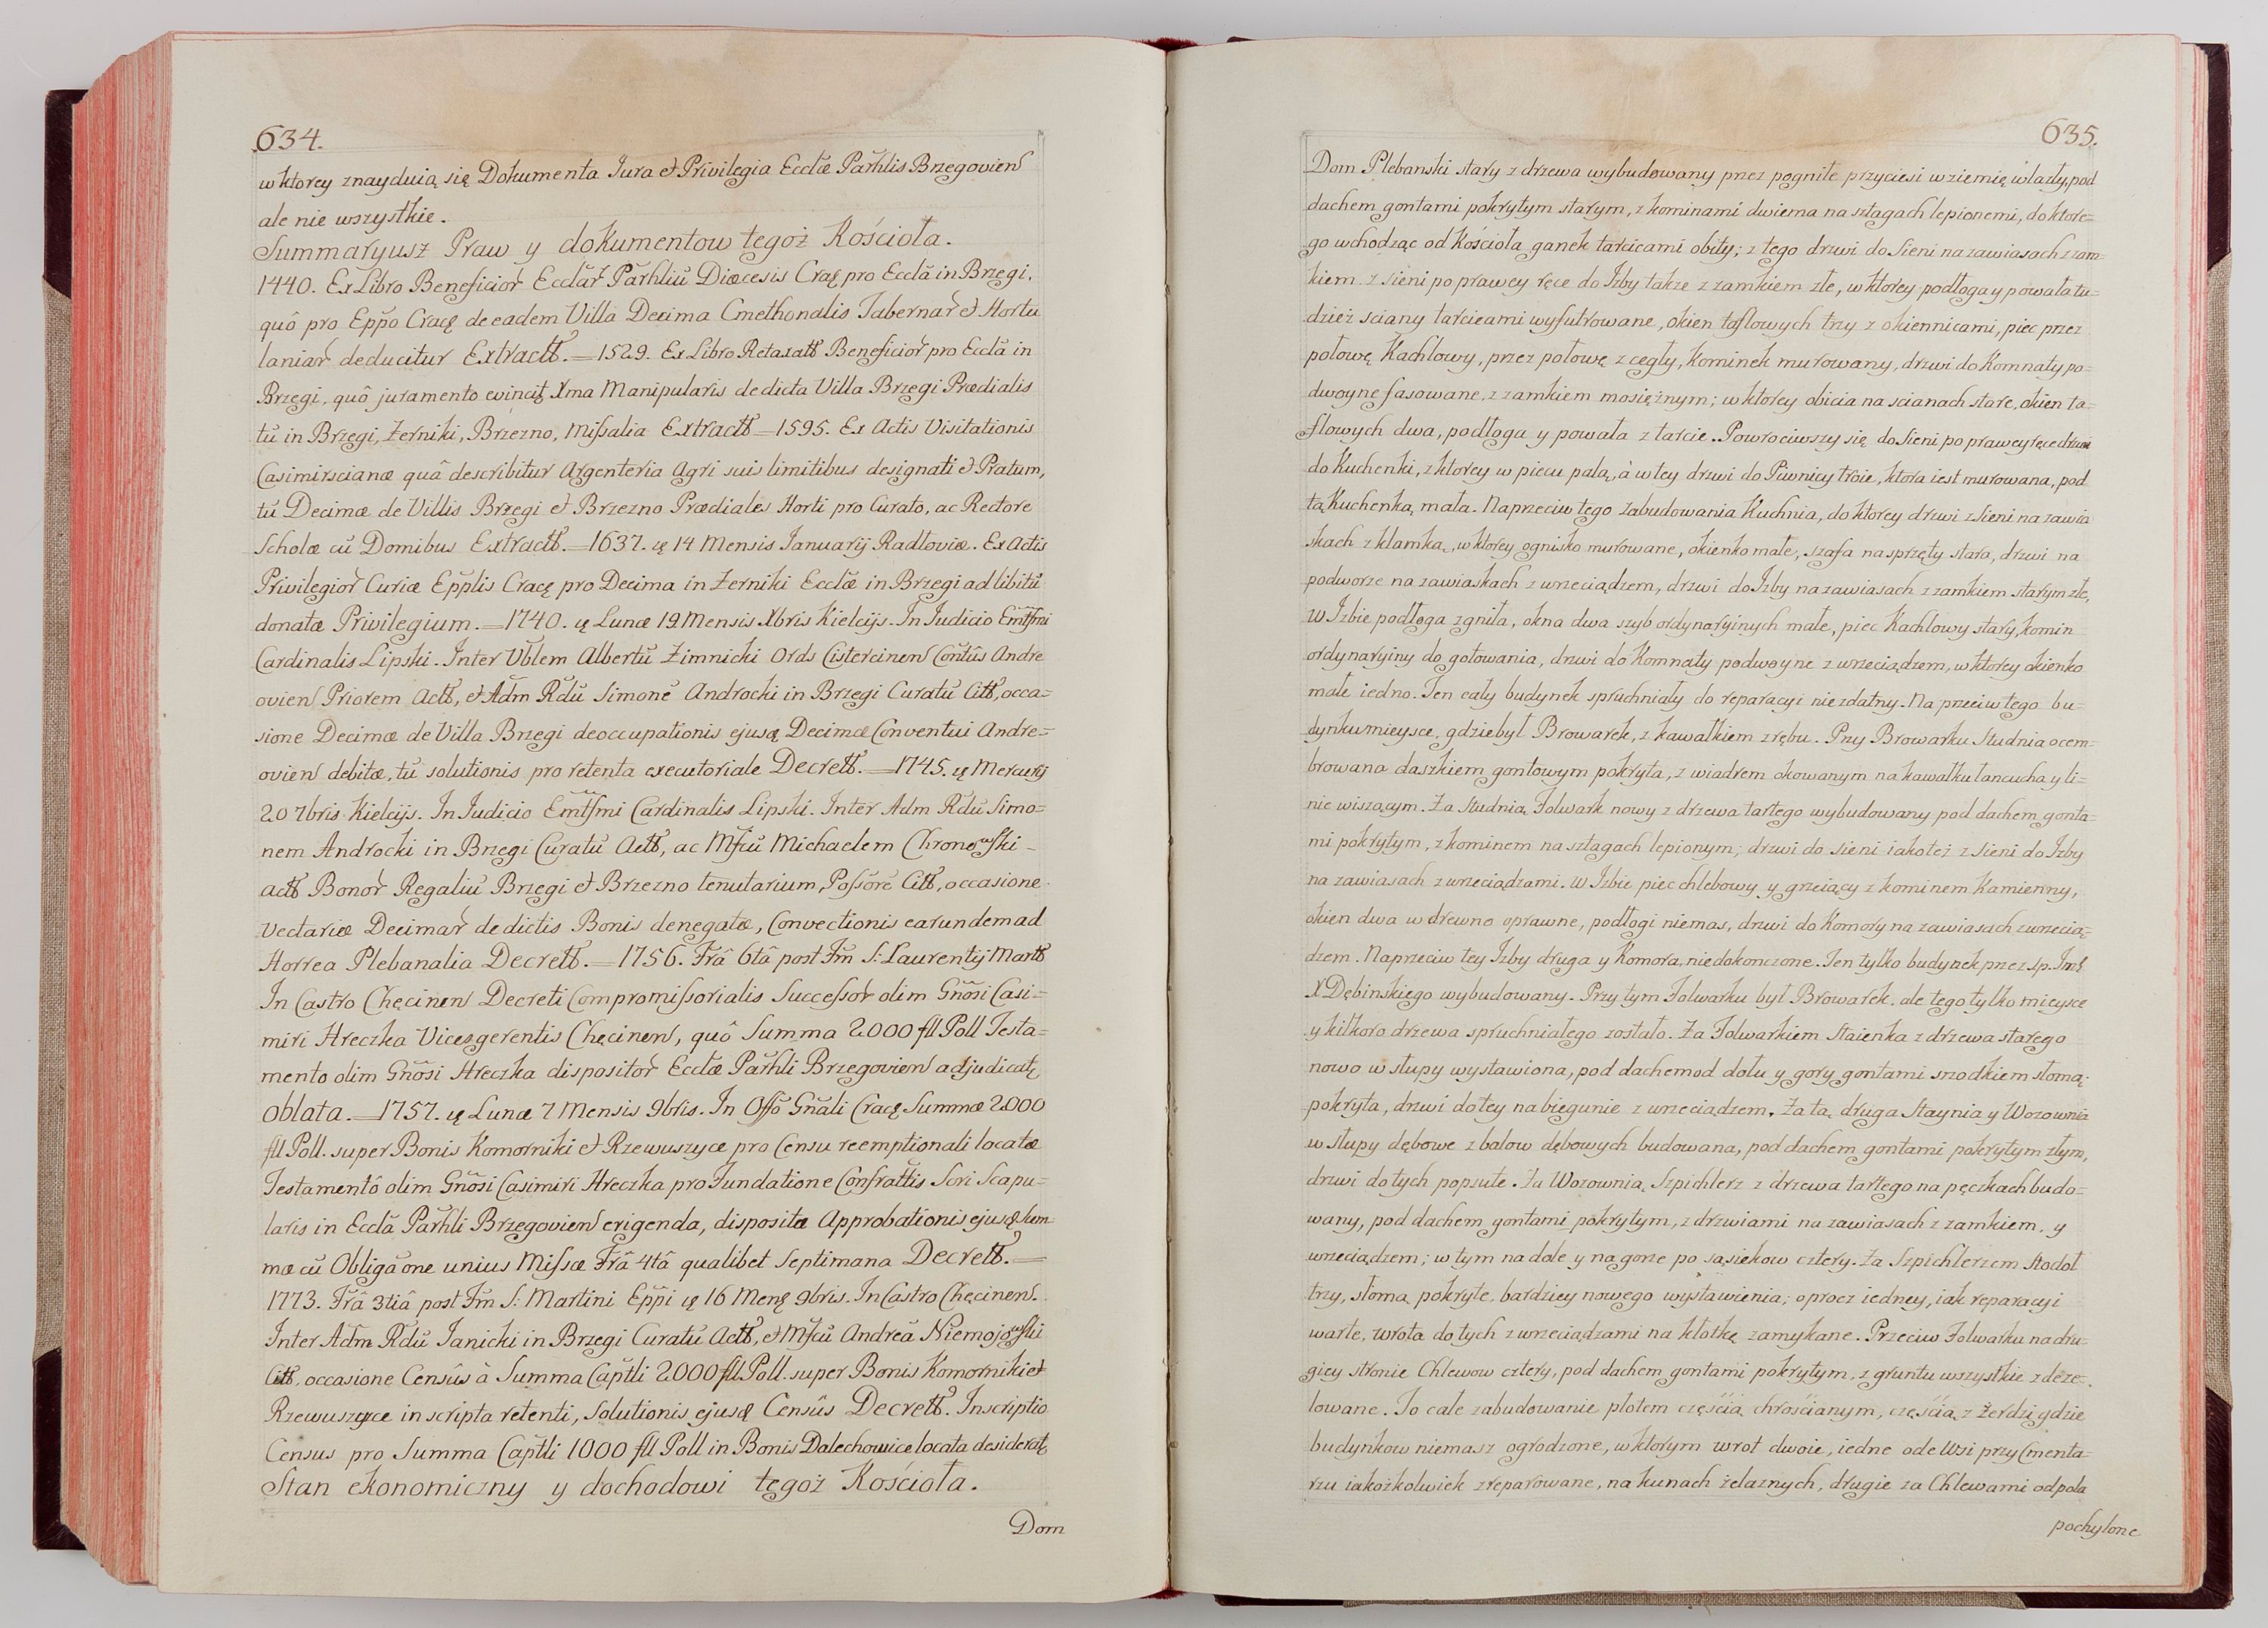 634.
w ktorey znayduią się Dokumenta Jura et Privilegia Eccłæ Parhlis Brzegovien
ale nie wszystkie.
Summaryusz Praw y dokumentow tegoż Kościoła.
1440. Ex Libro Beneficior Ecclar Parhliũ Diœcesis Cracę pro Ecclã in Brzegi,
quô pro Eppo Cracę de eadem Villa Decima Cmethonalis Tabernar et Hortu
laniar deducitur Extractt. — 1529. Ex Libro Retaxatt Beneficior pro Ecclã in
Brzegi, quô juramento evincit Xma Manipularis de dicta Villa Brzegi Prædialis
tũ in Brzegi, Żerniki, Brzezno, Missalia Extractt — 1595. Ex Actis Visitationis
Casimirscianæ quâ describitur Argenteria Agri suis limitibus designati et Pratum,
tũ Decimæ de Villis Brzegi et Brzezno Prædiales Horti pro Curato, ac Rectore
Scholæ cũ Domibus Extractt. — 1637. ię 14 Mensis Januarij Radłoviæ. Ex Actis
Privilegior Curiæ Epplis Cracę pro Decima in Żerniki Ecclæ in Brzegi ad libitũ
donatæ Privilegium. — 1740. ię Lunæ 19 Mensis Xbris Kielcijs. In Judicio Emtssmi
Cardinalis Lipski. Inter Vblem Albertũ Zimnicki Ords Cistercinen Contûs Andre
ovien Priorem Actt, et Adm Rdũ Simonẽ Androcki in Brzegi Curatũ Citt, occa-
sione Decimæ de Villa Brzegi deoccupationis ejusq Decimæ Conventui Andre-
ovien debitæ, tũ solutionis pro retenta executoriale Decrett. — 1745. ię Mercurij
20 7bris Kielcijs. In Judicio Emtssmi Cardinalis Lipski. Inter Adm Rdũ Simo-
nem Androcki in Brzegi Curatũ Actt, ac Mficũ Michaelem Chronowski
actt Bonor Regaliũ Brzegi et Brzezno tenutarium, Possorẽ Citt, occasione
Vectariæ Decimar de dictis Bonis denegatæ, Convectionis earundem ad
Horrea Plebanalia Decrett. — 1756. Frâ 6tâ post Fm S: Laurentij Martt
In Castro Chęcinen Decreti Compromissorialis Successor olim Gnosi Casi-
miri Hreczka Vicesgerentis Chęcinen, quô Summa 2000 fll Poll Testa-
mento olim Gnosi Hreczka dispositor Ecclæ Parhli Brzegovien adjudicatę
Oblata. — 1757. ię Lunæ 7 Mensis 9bris. In Offo Gnali Cracę Summæ 2000
fll Poll. super Bonis Komorniki et Rzewuszyce pro Censu reemptionali locatæ
Testamentô olim Gnosi Casimiri Hreczka pro Fundatione Confrattis Scri Scapu-
laris in Ecclã Parhli Brzegovien erigenda, dispositæ Approbationis ejusq Sum
mæ cũ Obligãone unius Missæ Frâ 4tâ qualibet Septimana Decrett. —
1773. Frâ 3tiâ post Fm S: Martini Eppi ię 16 Menę 9bris. In Castro Chęcinen.
Inter Adm Rdũ Janicki in Brzegi Curatũ Actt, et Mficũ Andreã Niemojowski
Citt, occasione Censûs à Summa Captli 2000 fll Poll. super Bonis Komorniki et
Rzewuszyce inscripta retenti, solutionis ejusq Censûs Decrett. Inscriptio
Census pro Summa Captli 1000 fll Poll in Bonis Dalechowice locata desideratę
Stan ekonomiczny y dochodowi tegoż Kościoła.
Dom
635.
Dom Plebanski stary z drzewa wybudowany przez pogniłe przyciesi w ziemię wlazły, pod
dachem gontami pokrytym starym, z kominami dwiema na sztagach lepionemi, do ktore-
go wchodząc od Kościoła ganek tarcicami obity; z tego drzwi do Sieni na zawiasach z zam-
kiem, z sieni po prawey ręce do Izby takze z zamkiem złe, w ktorey podłoga y powała tu-
dzież sciany tarcicami wyfutrowane, okien taflowych trzy z okiennicami, piec przez
połowę Kachlowy, przez połowę z cegły, kominek murowany, drzwi do Komnaty po-
dwoyne fasowane, z zamkiem mosiężnym; w ktorey obicia na scianach stare, okien ta-
flowych dwa, podłoga y powała z tarcic. Powrociwszy się do Sieni po prawey ręce drzwi
do Kuchenki, z ktorey w piecu palą, à w tey drzwi do Piwnicy troie, ktora iest murowana, pod
tą Kuchenką mała. Naprzeciw tego zabudowania Kuchnia, do ktorey drzwi z Sieni na zawia
skach z klamką, w ktorey ognisko murowane, okienko małe, szafa na sprzęty stara, drzwi na
podworze na zawiaskach z wrzeciądzem, drzwi do Izby na zawiasach z zamkiem starym złe,
w Izbie podłoga zgniła, okna dwa szyb ordynaryinych małe, piec Kachlowy stary, komin
ordynaryiny do gotowania, drzwi do Komnaty podwoyne z wrzeciądzem, w ktorey okienko
małe iedno. Ten cały budynek spruchniały do reparacyi niezdatny. Na przeciw tego bu-
dynku mieysce, gdzie był Browarek, z kawałkiem zrębu. Przy Browarku Studnia ocem-
browana daszkiem gontowym pokryta, z wiadrem okowanym na kawałku łancucha y li-
nie wiszącym. Za Studnią Folwark nowy z drzewa tartego wybudowany pod dachem gonta-
mi pokrytym, z kominem na sztagach lepionym; drzwi do sieni iakoteż z Sieni do Izby
na zawiasach z wrzeciądzami. W Izbie piec chlebowy y grzeiący z kominem Kamienny,
okien dwa w drewno oprawne, podłogi niemas, drzwi do Komory na zawiasach z wrzecią-
dzem. Naprzeciw tey Izby druga y Komora, niedokonczone. Ten tylko budynek przez Sp. Jmć
X Dębinskiego wybudowany. Przy tym Folwarku był Browarek, ale tego tylko mieysce
y kilkoro drzewa spruchniałego zostało. Za Folwarkiem Staienka z drzewa starego
nowo w słupy wystawiona, pod dachem od dołu y gory gontami srzodkiem słomą
pokryta, drzwi do tey na biegunie z wrzeciądzem. Za tą druga Staynia y Wozownia
w słupy dębowe z balow dębowych budowana, pod dachem gontami pokrytym złym,
drzwi do tych popsute. Za Wozownią Szpichlerz z drzewa tartego na pęczkach budo-
wany, pod dachem gontami pokrytym, z drzwiami na zawiasach z zamkiem, y
wrzeciądzem; w tym na dole y na gorze po sąsiekow cztery. Za Szpichlerzem Stodoł
trzy, słomą pokryte, bardziey nowego wystawienia; oprocz iedney, iak reparacyi
warte, wrota do tych z wrzeciądzami na kłotkę zamykane. Przeciw Folwarku na dru-
giey stronie Chlewow cztery, pod dachem gontami pokrytym, z gruntu wszystkie zdeze-
lowane. To całe zabudowanie płotem częścią chrościanym, częścią z żerdzi gdzie
budynkow niemasz ogrodzone, w ktorym wrot dwoie, iedne ode Wsi przy Cmenta-
rzu iakożkolwiek zreparowane, na kunach żelaznych, drugie za Chlewami od pola
pochylone